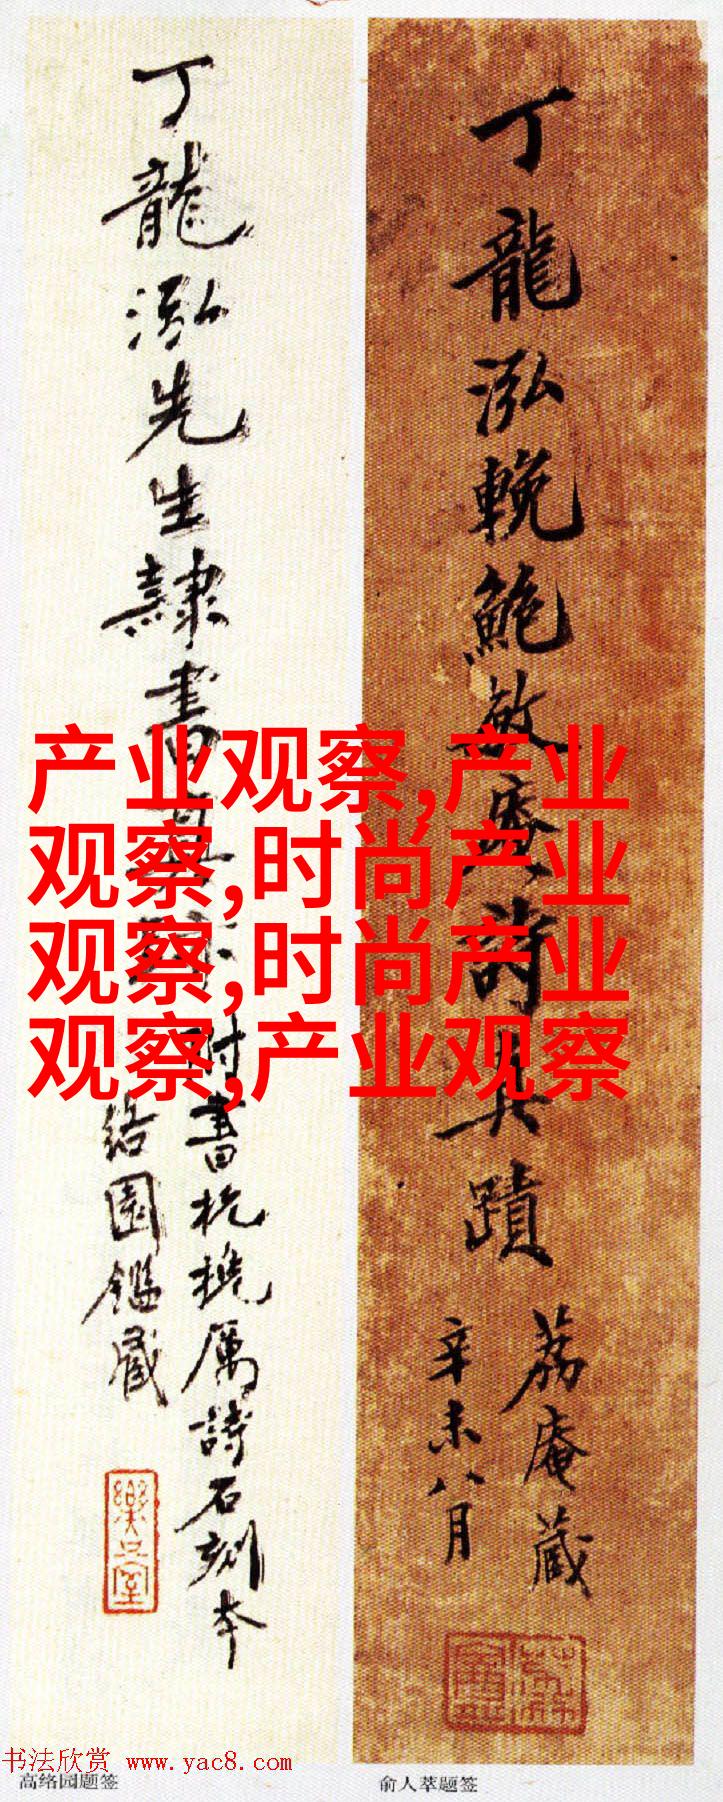 丁龍泓輓鮑敬齋詩真蹟
荔庵藏
辛未八月
丁龍泓先生隸書真跡
附書杭堇厲詩石刻本
絡園鑑藏
樂只室
产业观察,产业
观察,时尚产业
观察,时尚产业
观察,产业观察
书法欣赏 www.yac8.com
高络园题签
俞人萃题签